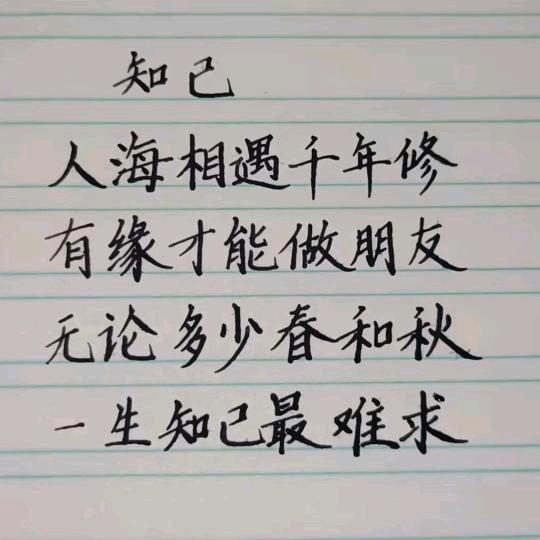 知己
人海相遇千年修
有缘才能做朋友
无论多少春和秋
一生知己最难求